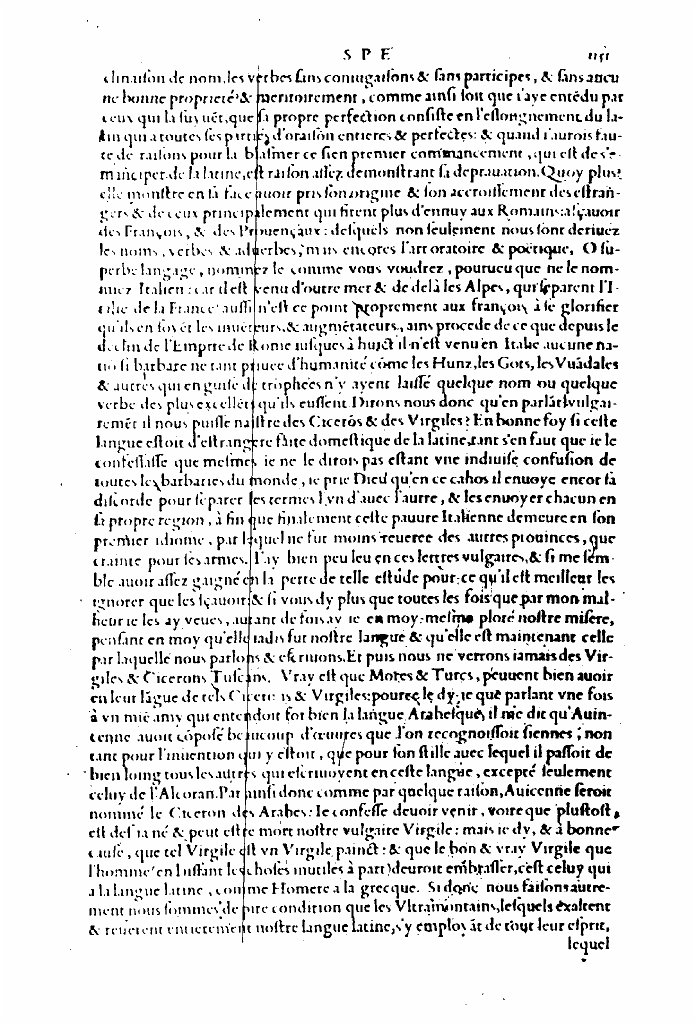 S P E 1151
clinaison de nom, les verbes sans coniugaisons & sans participes, & sans aucu
ne bonne proprieté & meritoirement, comme ainsi soit que i'aye entēdu par
ceux qui la suyuēt, que sa propre perfection consiste en l'eslongnement du la-
tin qui a toutes ses parties d'oraison entieres & perfectes: & quand i'aurois fau-
te de raisons pour la blasmer ce sien premier commancement, qui est de s'e-
manciper de la latine, est raison assez demonstrant sa deprauation. Quoy plus:
elle monstre en sa face auoir pris son origine & son accroissement des estran-
gers & de ceux principalement qui firent plus d'ennuy aux Romains: asçauoir
des François, & des Prouençaux: desquels non seulement nous sont deriuez
les noms, verbes & aduerbes, mais encores l'art oratoire & poëtique, O su-
perbe langage, nommez le comme vous voudrez, pourueu que ne le nom-
miez Italien: car il est venu d'outre mer & de delà les Alpes, qui separent l'I-
talie de la France aussi n'est ce point proprement aux françois à se glorifier
qu'ils en soyēt les inuēteurs, & augmētateurs, ains procede de ce que depuis le
declin de l'Empire de Rome iusques à huict il n'est venu en Italie aucune na-
tiō si barbare ne tant priuee d'humanité cōme les Hunz, les Gots, les Vuādales
& autres qui en guise de trophees n'y ayent laissé quelque nom ou quelque
verbe des plus excellēts qu'ils eussent Dirons nous donc qu'en parlāt vulgai-
remēt il nous puisse naistre des Cicerōs & des Virgiles? En bonne foy si ceste
langue estoit d'estrangere faite domestique de la latine, tant s'en faut que ie le
confessasse que mesmes ie ne le dirois pas estant vne indiuise confusion de
toutes les barbaries du monde, ie prie Dieu qu'en ce cahos il enuoye encor sa
discorde pour separer ses termes l'vn d'auec l'autre, & les enuoyer chacun en
sa propre region, à fin que finalement ceste pauure Italienne demeure en son
premier idiome, par lequel ne fut moins reueree des autres prouinces, que
crainte pour ses armes. I'ay bien peu leu en ces lettres vulgaires, & si me sem-
ble auoir assez gaigné en la perte de telle estude pour ce qu'il est meilleur les
ignorer que les sçauoir: & si vous dy plus que toutes les fois que par mon mal-
heur ie les ay veues, autant de fois ay ie en moy mesme ploré nostre misere,
pensant en moy qu'elle iadis fut nostre langue & qu'elle est maintenant celle
par laquelle nous parlons & escriuons. Et puis nous ne verrons iamais des Vir-
giles & Cicerons Tuscans. Vray est que Mores & Turcs, peuuent bien auoir
en leur lāgue de tels Cicerons & Virgiles: pource le dy-ie que parlant vne fois
à vn mié amy qui entendoit fort bien la langue Arabesque, il me dit qu'Auin-
cenne auoit cōposé beaucoup d'œuures que l'on recognoissoit siennes; non
tant pour l'inuention qui y estoit, que pour son stille auec lequel il passoit de
bien loing tous les autres qui escriuoyent en ceste langue, excepté seulement
celuy de l'Alcoran. Par ainsi donc comme par quelque raison, Auicenne seroit
nommé le Ciceron des Arabes: Ie confesse deuoir venir, voire que plustost,
est desia né & peut estre mort nostre vulgaire Virgile: mais ie dy, & à bonne
cause, que tel Virgile est vn Virgile painct: & que le bon & vray Virgile que
l'homme en laissant les choses inutiles à part) deuroit embrasser, c'est celuy qui
a la langue latine, comme Homere a la grecque. Si donc nous faisons autre-
ment nous sommes de pire condition que les Vltramontains, lesquels exaltent
& reuerent entierement nostre langue latine, s'y employāt de tout leur esprit,
lequel